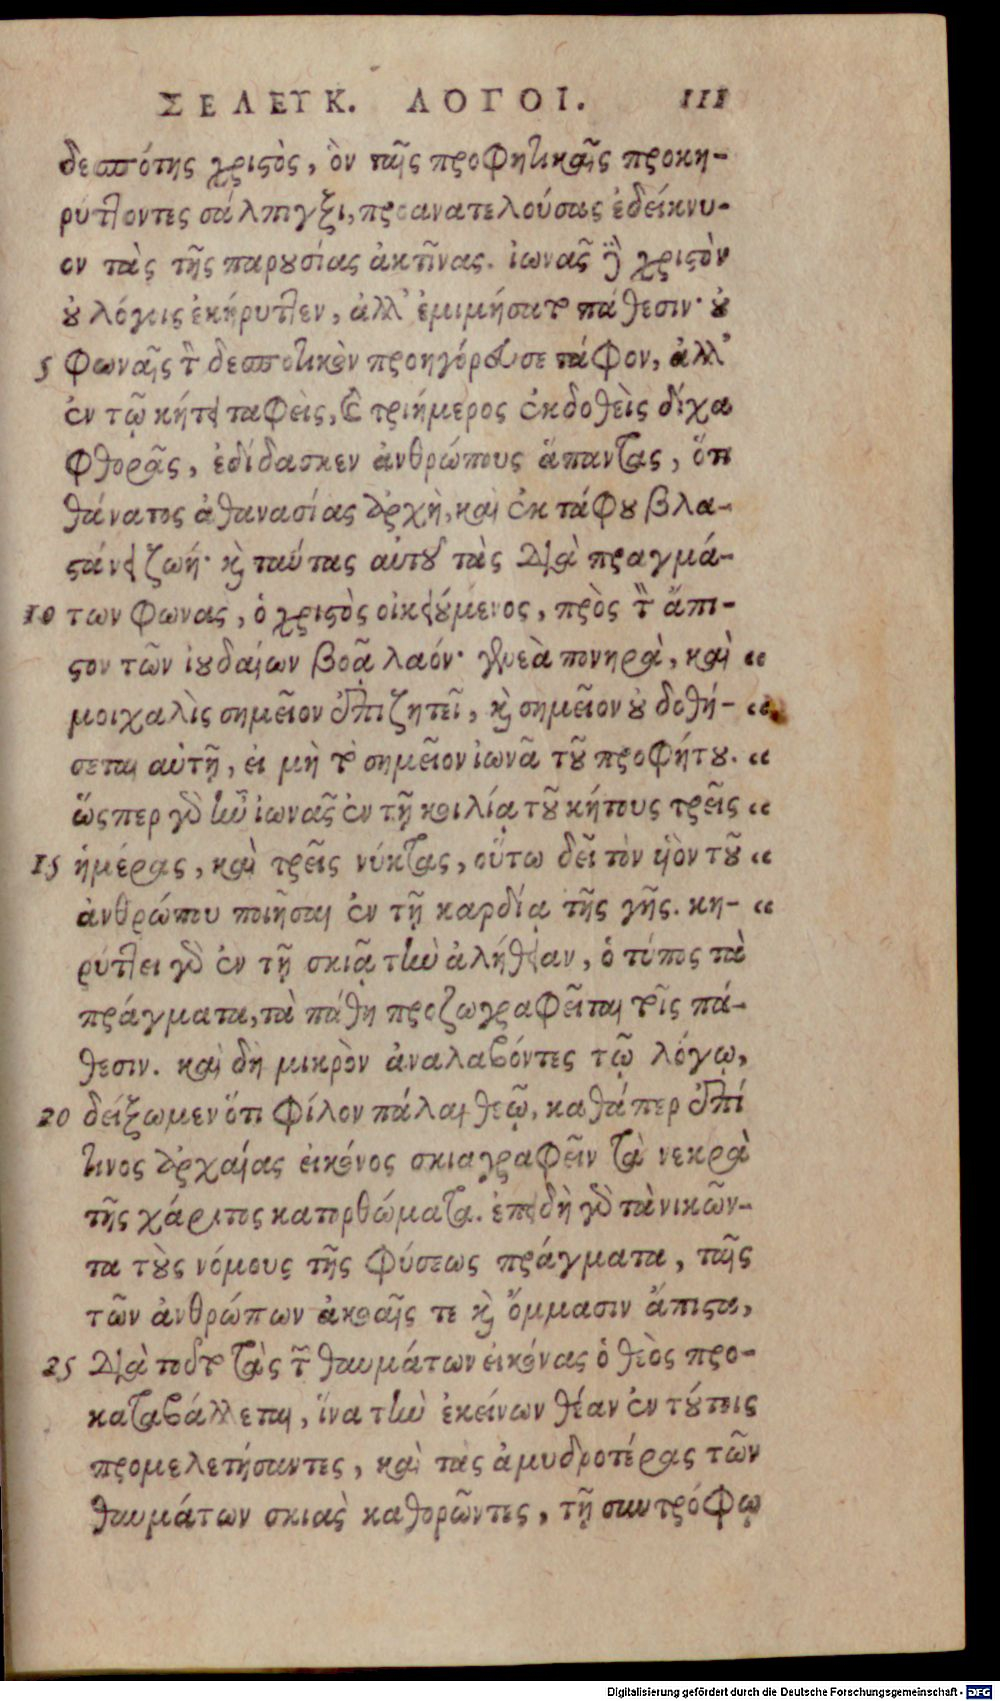 ΣΕΛΕΥΚ. ΛΟΓΟΙ. 111
δεσπότης χριστὸς, ὃν ταῖς προφητικαῖς προκη-
ρύττοντες σάλπιγξι, προανατελούσας ἐδείκνυ-
ον τὰς τῆς παρουσίας ἀκτῖνας. ἰωνᾶς ὃ χριστὸν
οὐ λόγοις ἐκήρυττεν, ἀλλ' ἐμιμήσατο πάθεσιν· οὐ
5 φωναῖς τ̀ δεσποτικὸν προηγόρευσε τάφον, ἀλλ'
ἐν τῷ κήτει ταφεὶς, καὶ τριήμερος ἐκδοθεὶς δίχα
φθορᾶς, ἐδίδασκεν ἀνθρώπους ἅπαντας, ὅτι
θάνατος ἀθανασίας ἀρχὴ, καὶ ἐκ τάφου βλα-
στάνει ζωή· καὶ ταύτας αὐτοῦ τὰς διὰ πραγμά-
10 των φωνας, ὁ χριστὸς οἰκειούμενος, πρὸς τ̀ ἄπι-
στον τῶν ἰουδαίων βοᾷ λαόν· γενεὰ πονηρὰ, καὶ “
μοιχαλὶς σημεῖον ἐπιζητεῖ, καὶ σημεῖον οὐ δοθή- “
σεται αὐτῇ, εἰ μὴ τὸ σημεῖον ἰωνᾶ τοῦ προφήτου. “
ὥσπερ γὸ ἦν ἰωνᾶς ἐν τῇ κοιλίᾳ τοῦ κήτους τρεῖς “
15 ἡμέρας, καὶ τρεῖς νύκτας, οὕτω δεῖ τὸν ὑὸν τοῦ “
ἀνθρώπου ποιῆσαι ἐν τῇ καρδίᾳ τῆς γῆς. κη- “
ρύττει γὸ ἐν τῇ σκιᾷ τὴν ἀλήθειαν, ὁ τύπος τὰ
πράγματα, τὰ πάθη προζωγραφεῖται τοῖς πά-
θεσιν. καὶ δὴ μικρὸν ἀναλαβόντες τῷ λόγῳ,
20 δείξωμεν ὅτι φίλον πάλαι θεῷ, καθάπερ ἐπί
τινος ἀρχαίας εἰκόνος σκιαγραφεῖν τὰ νεκρὰ
τῆς χάριτος κατορθώματα. ἐπειδὴ γὸ τὰ νικῶν-
τα τοὺς νόμους τῆς φύσεως πράγματα, ταῖς
τῶν ἀνθρώπων ἀκοαῖς τε καὶ ὄμμασιν ἄπιστα,
25 διὰ τοῦτο τὰς τ̃ θαυμάτων εἰκόνας ὁ θεὸς προ-
καταβάλλεται, ἵνα τὴν ἐκείνων θέαν ἐν τύποις
προμελετήσαντες, καὶ τὰς ἀμυδροτέρας τῶν
θαυμάτων σκιας καθορῶντες, τῇ συντρόφῳ
Digitalisierung gefördert durch die Deutsche Forschungsgemeinschaft - DFG